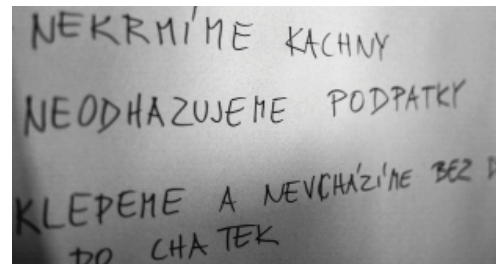 NEKRMÍME KACHNY
NEODHAZUJEME PODPATKY
KLEPEME A NEVCHÁZÍME BEZ
DO CHATEK